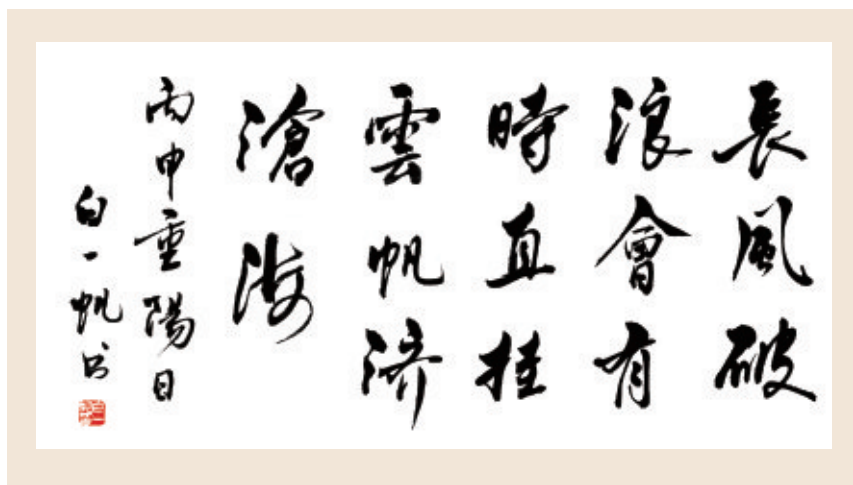 長風破
浪會有
時直挂
雲帆济
滄海
丙申重陽日
白一帆书